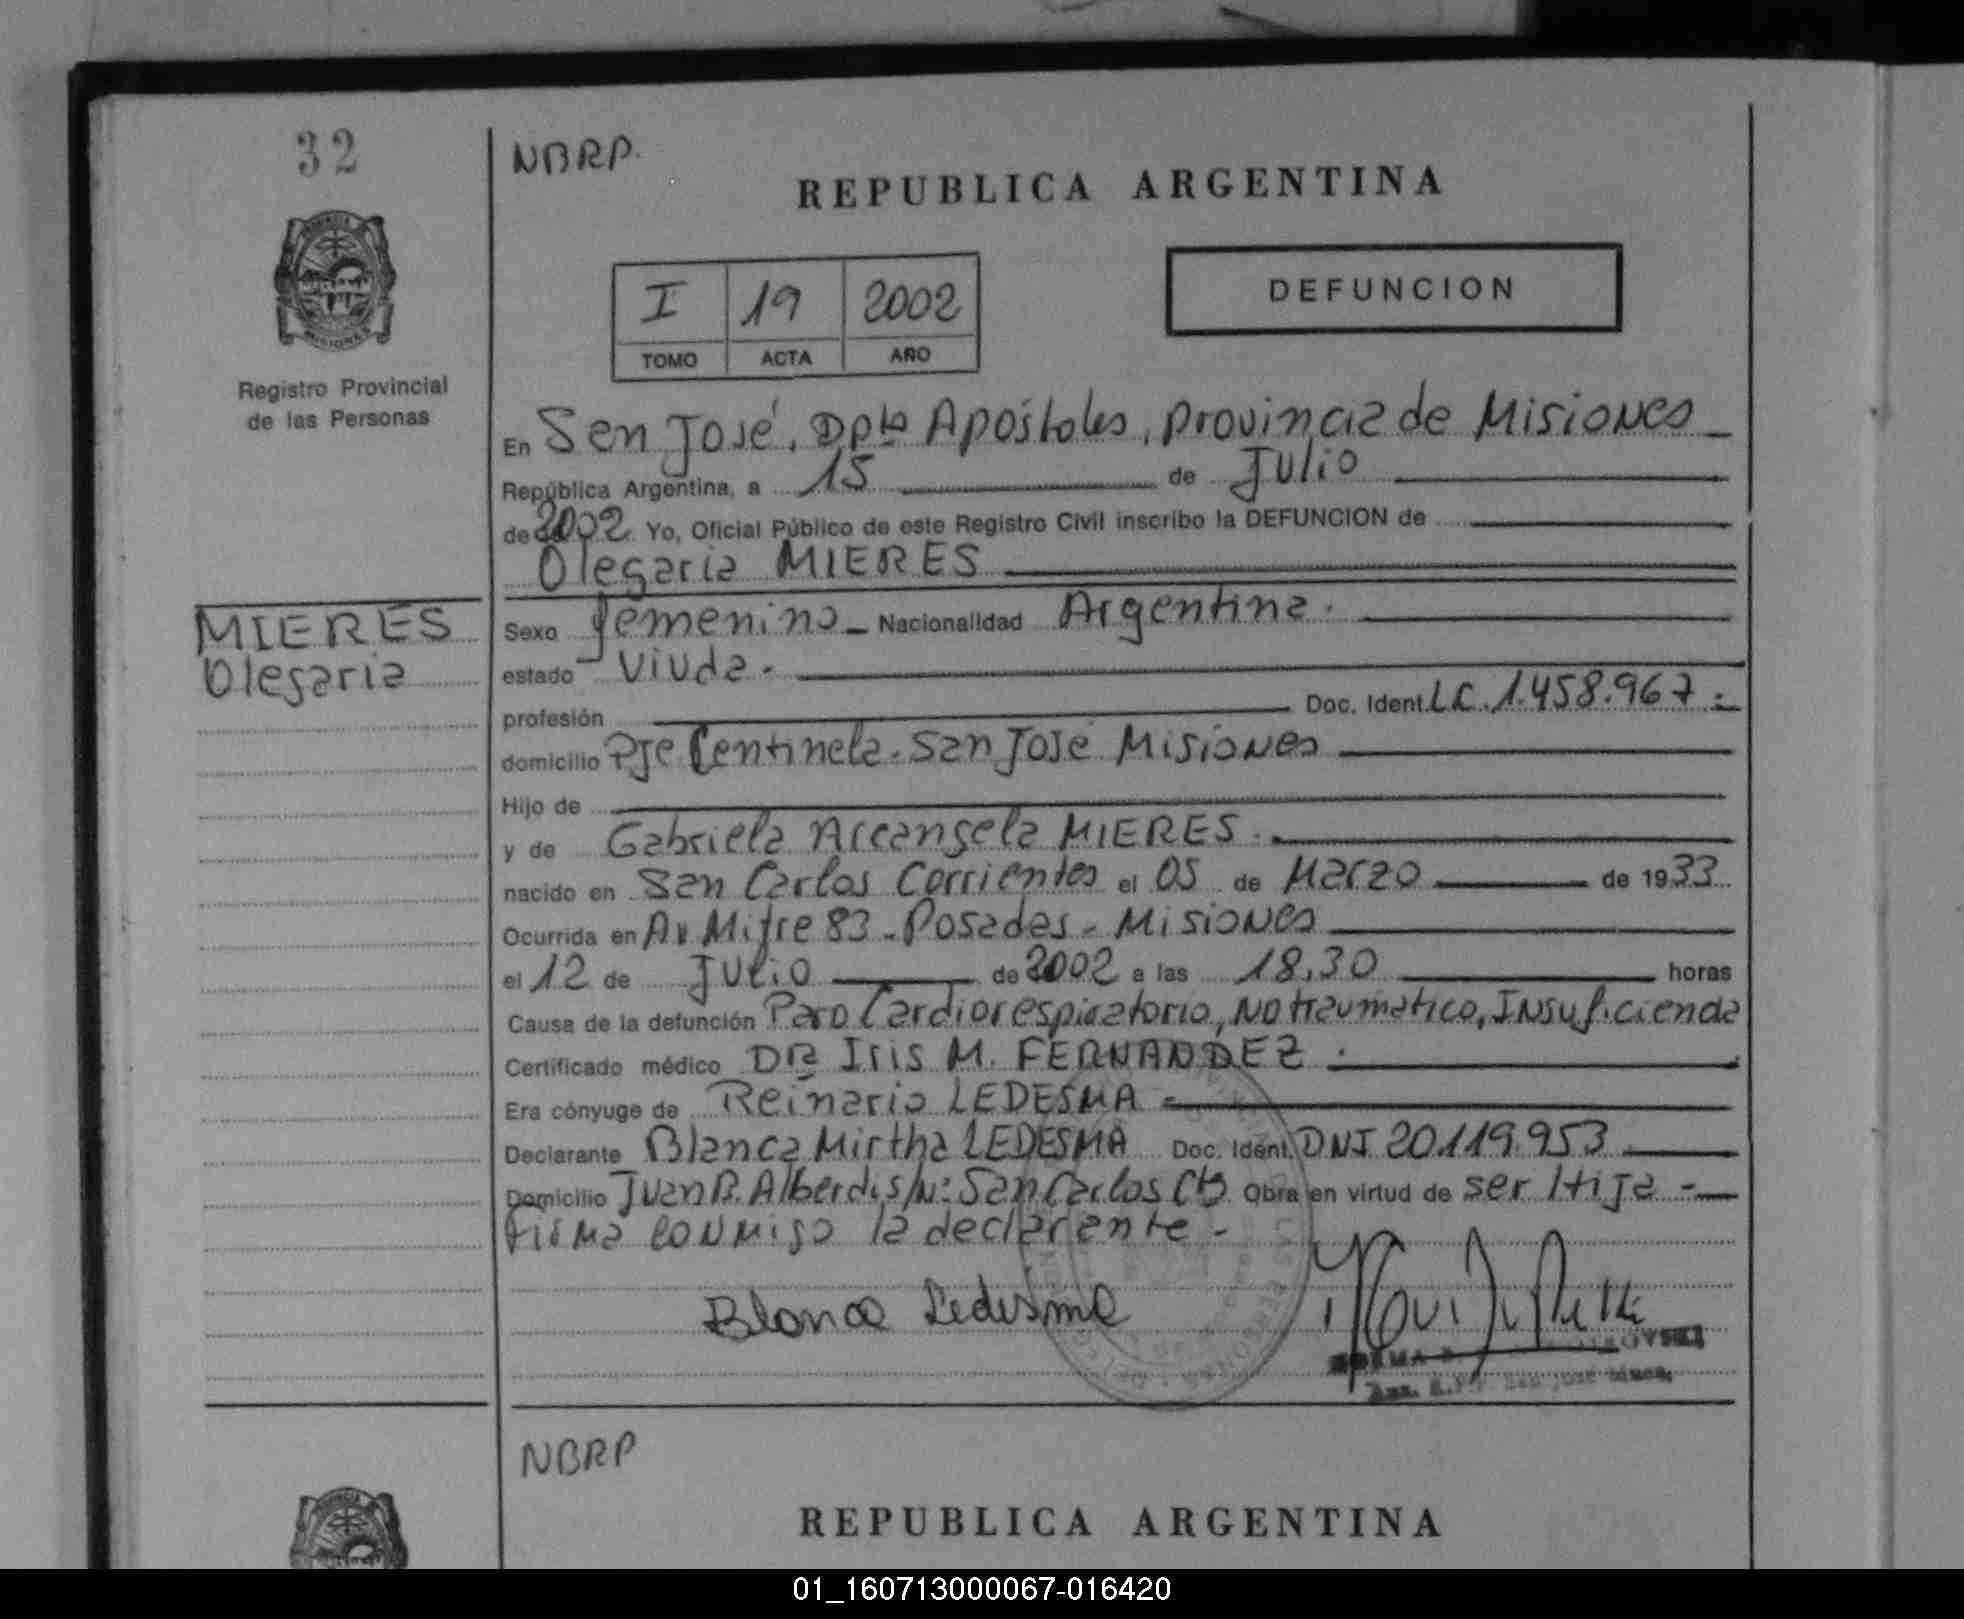 32
NBRP.
REPUBLICA ARGENTINA
PROVINCIA
MISIONES
I 19 2002
TOMO ACTA AÑO
DEFUNCION
Registro Provincial
de las Personas
En San José, Dpto Apóstoles, Provincia de Misiones
República Argentina, a 15 de Julio
de 2002 Yo, Oficial Público de este Registro Civil inscribo la DEFUNCION de
Olegaria MIERES
MIERES
Olegaria
Sexo femenino Nacionalidad Argentina.
estado Viuda.
profesión Doc. Ident. LC. 1.458.967.
domicilio Pje Centinela. San José Misiones
Hijo de
y de Gabriela Arcangela MIERES.
nacido en San Carlos Corrientes el 05 de Marzo de 1933
Ocurrida en Av Mitre 83 - Posadas - Misiones
el 12 de Julio de 2002 a las 18,30 horas
Causa de la defunción Paro Cardiorespiratorio, No traumatico, Insuficiencia
Certificado médico DRA Iris M. FERNANDEZ.
Era cónyuge de Reinario LEDESMA
Declarante Blanca Mirtha LEDESMA Doc. Ident. DNI 20.119.953
Domicilio Juan B. Alberdi s/N: San Carlos Ctes Obra en virtud de ser Hija -
firma conmigo la declarante -
Blanca Ledesma
NBRP
REPUBLICA ARGENTINA
01_160713000067-016420